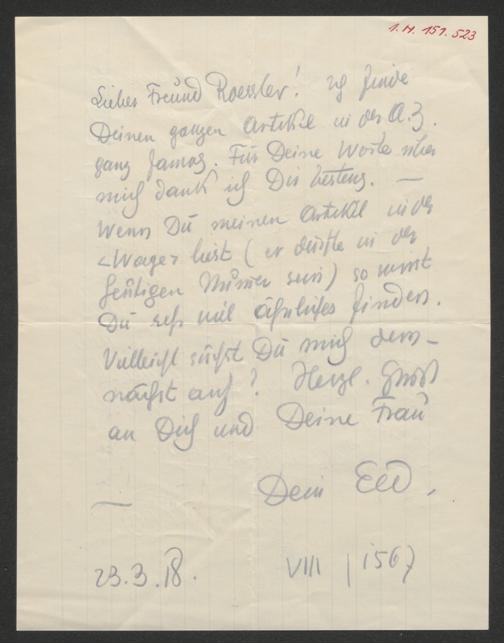 I.N. 151.523
Lieber Freund Roessler! Ich finde
Deinen ganzen Artikel in der A.Z.
ganz famos. Für Deine Worte über
mich dank ich Dir bestens. —
Wenn Du meinen Artikel in der
<Wage> liest (er dürfte in der
heutigen Nummer sein) so wirst
Du sehr viel ähnliches finden.
Vielleicht suchst Du mich dem-
nächst auf? Herzl. Gruß
an Dich und Deine Frau
Dein
23.3.18.
VIII | 1567